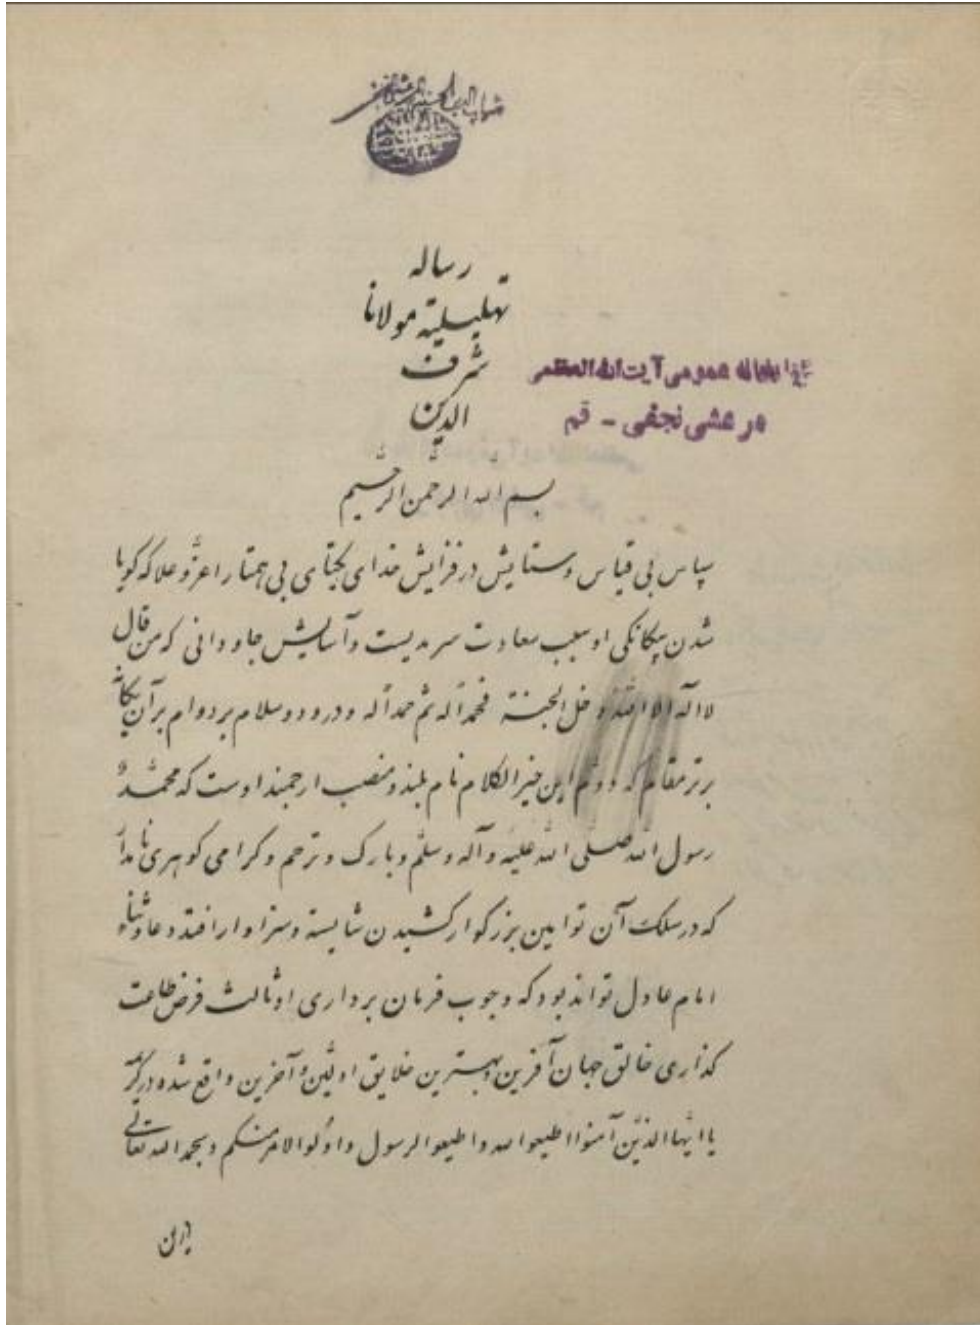 شهاب الدین الحسینی المرعشی النجفی
رساله
تهلیلیة مولانا
شرف
الدین
کتابخانه عمومی آیت الله العظمی
مرعشی نجفی - قم
بسم الله الرحمن الرحیم
سپاس بی قیاس و ستایش در فزایش خدای یکتای بی همتا را عزّ و علا که گویا
شدن بیکانکی او سبب سعادت سرمدیست و آسایش جاودانی که من قال
لا اله الا الله دخل الجنة فحمداً له ثم حمداً له و درود و سلام بر دوام بر آن یکانهٔ
برتر مقام که دوّم این خیر الکلام نام بلند و منصب ارجمند اوست که محمّدٌ
رسول الله صلّی الله علیه و آله و سلّم و بارک و ترحم و کرامی کوهری نامدار
که در سلک آن توامین بزرکوار کشیدن شایسته و سزاوار افتد دعا و ثناء
امام عادل تواند بود که وجوب فرمان برداری او ثالث فرض طاعت
کذاری خالق جهان آفرین و بهترین خلایق اولین و آخرین واقع شده در کریمه
یا ایّها الذین آمنوا اطیعوا الله و اطیعو الرسول و اولو الامر منکم و بحمد الله تعالی